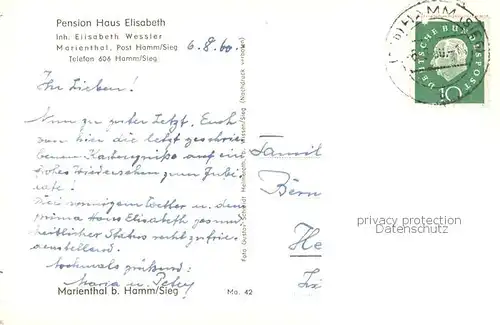 Pension Haus Elisabeth
Inh. Elisabeth Wessler
Marienthal, Post Hamm/Sieg
Telefon 606 Hamm/Sieg
6.8.60.
Ihr Lieben!
Nun zu guter Letzt. Euch
von hier die letzt geschrie-
benen Kartengrüße auf ein
frohes Wiedersehen zum
Bei sonnigem Wetter u. dem
prima Haus Elisabeth gesund-
heitlicher Status recht zufrie-
denstellend.
Nochmals grüßend:
Maria u.
Marienthal b. Hamm/Sieg
Ma. 42
Foto Gustav Schmidt Wissen/Sieg (Nachdruck verboten)
HAMM (SIEG)
DEUTSCHE BUNDESPOST
10
Famil
Bern
He
privacy protection
Datenschutz